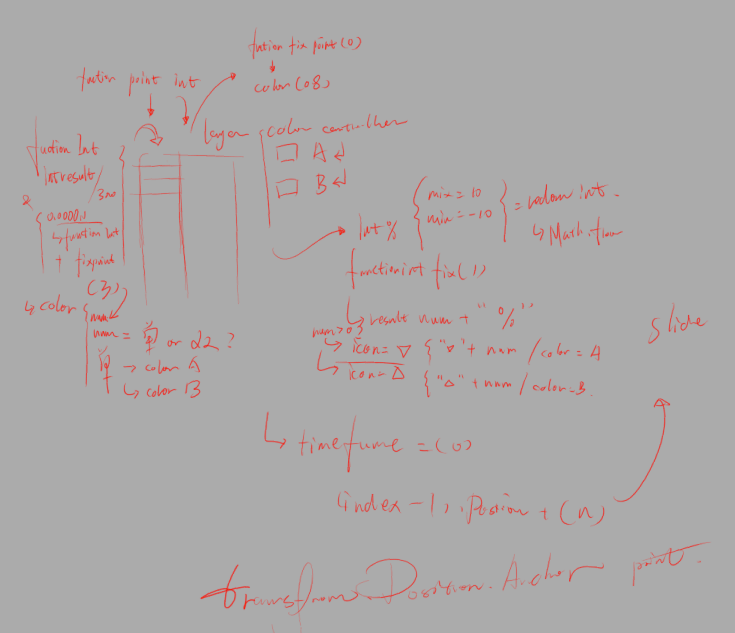 fuction fix point(0)
color(08)
fuction point int
layer
color controlher
A
B
fuction Int
Int result /
0.0000n
function Int
+ fixpoint
(3)
color
num
num = 单 or 22 ?
单 → color A
↳ color B
Int %
mix = 10
min = -10
= radom int.
↳ Math.
function int fix(1)
↳ result num + "%"
num>0
icon = ▽ { "▽" + num / color = A
icon = △ { "△" + num / color = B
slide
↳ time = (0)
(index -1), Postion + (n)
transform.Position.Anchor point.